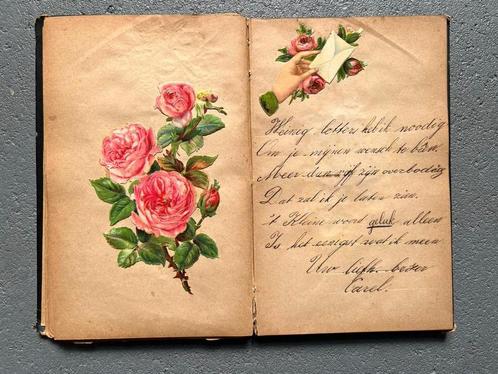 Weinig letters heb ik noodig
Om je mijnen wensch te bien.
Meer dan vijf zijn overbodig
Dat zal ik je laten zien.
't Kleine woord geluk alleen
Is het eenigst wat ik meen
Uw liefh. 
Carel.